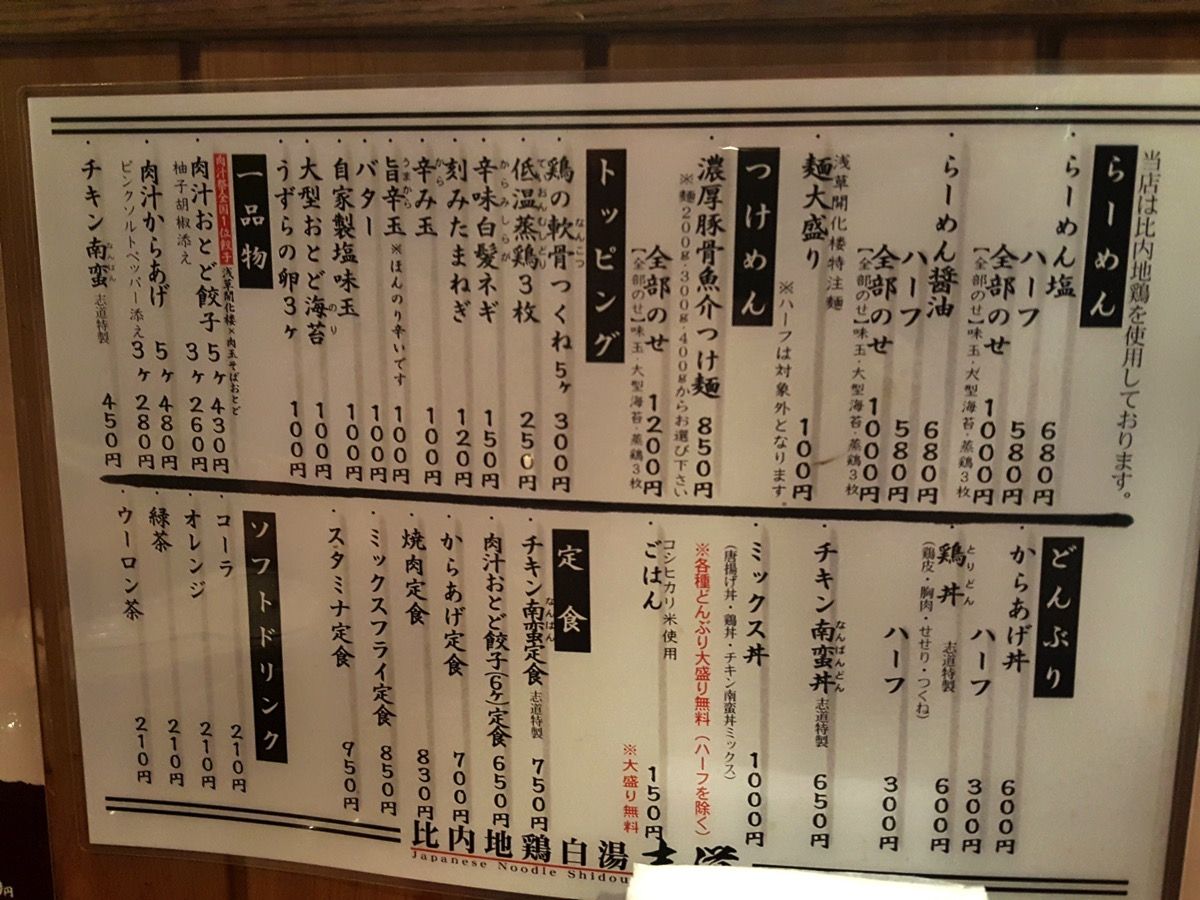 当店は比内地鶏を使用しております。
らーめん
・らーめん塩 680円
ハーフ 580円
全部のせ 1000円
【全部のせ】味玉・大型海苔・蒸鶏3枚
・らーめん醤油 680円
ハーフ 580円
全部のせ 1000円
【全部のせ】味玉・大型海苔・蒸鶏3枚
浅草開化楼特注麺
・麺大盛り 100円
※ハーフは対象外となります。
つけめん
・濃厚豚骨魚介つけ麺 850円
※麺200g・300g・400gからお選び下さい
全部のせ 1200円
【全部のせ】味玉・大型海苔・蒸鶏3枚
トッピング
・鶏の軟骨つくね5ヶ 300円
なんこつ
・低温蒸鶏3枚 250円
ていおんむしどり
・辛味白髪ネギ 150円
からみしらが
・刻みたまねぎ 120円
・辛み玉 100円
から
・旨辛玉 ※ほんのり辛いです 100円
うまから
・バター 100円
・自家製塩味玉 100円
・大型おとど海苔 100円
のり
・うずらの卵3ヶ 100円
一品物
肉汁餃全国1位餃子 浅草開化楼×肉玉そばおとど
・肉汁おとど餃子 5ヶ 430円
柚子胡椒添え 3ヶ 260円
・肉汁からあげ 5ヶ 480円
ピンクソルトペッパー添え 3ヶ 280円
・チキン南蛮 志道特製 450円
なんばん
どんぶり
・からあげ丼 600円
ハーフ 300円
・鶏丼 志道特製 600円
とりどん
(鶏皮・胸肉・せせり・つくね)
ハーフ 300円
・チキン南蛮丼 志道特製 650円
なんばんどん
・ミックス丼 1000円
(唐揚げ丼・鶏丼・チキン南蛮丼ミックス)
※各種どんぶり大盛り無料(ハーフを除く)
コシヒカリ米使用
・ごはん 150円
※大盛り無料
定食
・チキン南蛮定食 志道特製 750円
なんばん
・肉汁おとど餃子(6ヶ)定食 650円
・からあげ定食 700円
・焼肉定食 830円
・ミックスフライ定食 850円
・スタミナ定食 950円
ソフトドリンク
・コーラ 210円
・オレンジ 210円
・緑茶 210円
・ウーロン茶 210円
比内地鶏白湯
Japanese Noodle Shidou
円